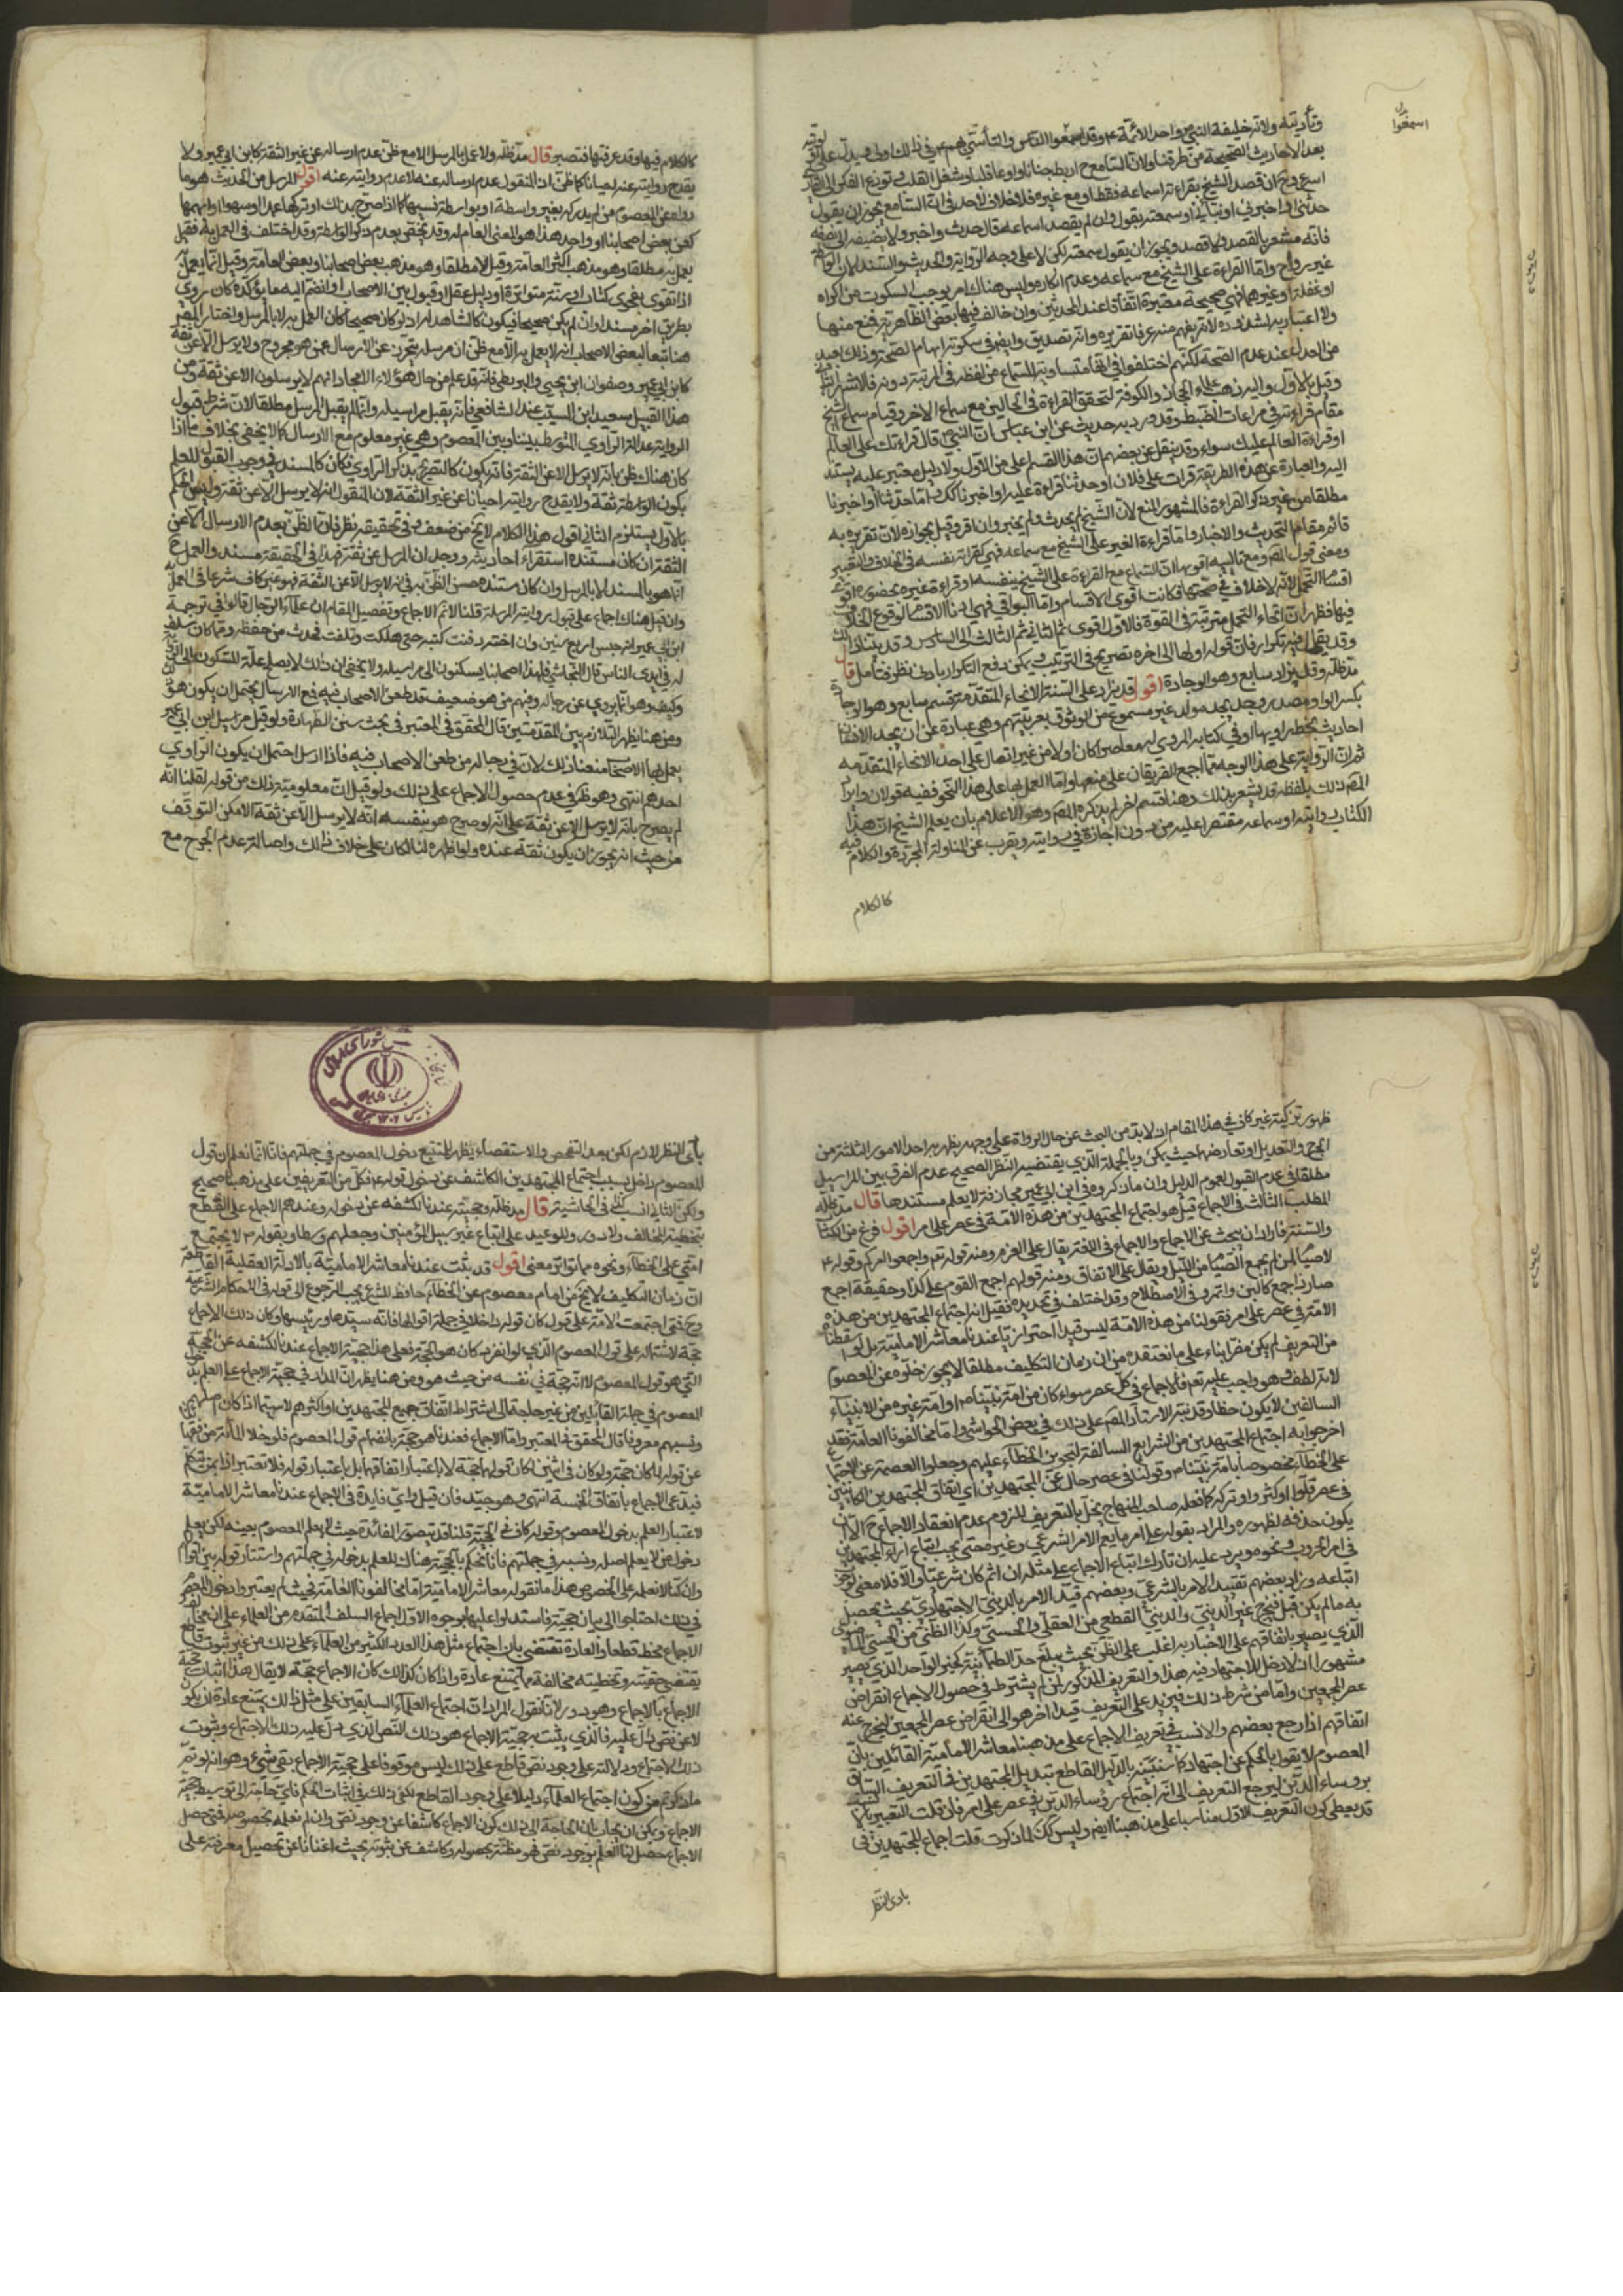 وتأديته ولانه خليفة النبي واحد الائمة
بعد الاحاديث الصحيحة من طرقنا ولان السامع ح اربط جنانا واوعا قلبا وشغل القلب وتوزع الفكر الى القاري
اسرع وح ان قصد الشيخ بقراءته اسماعه فقط او مع غيره فلا خلاف لاحد في انه السامع يجوز ان يقول
حدثني واخبرني وانبأني او سمعته يقول وان لم يقصد اسماعه قال حدث واخبر ولا يضيفه الى نفسه
فانه مشعر بالقصد ولا قصد ويجوز ان يقول سمعته لكن لا على وجه الرواية والحديث والسند
غير رواح واما القراءة على الشيخ مع سماعه وعدم انكاره وليس هناك امر يوجب السكوت من اكراه
او غفلة او غيرهما فهي صحيحة معتبرة اتفاقا عند المحدثين وان خالف فيها بعض الظاهرية فمنع منها
ولا اعتبار به لشذوذه لانه يفهم منه عرفا تقريره وانه تصديق وايضا في سكوته ايهام الصحة وذلك بعيد
من العدل عند عدم الصحة لكنهم اختلفوا في انها متساوية للسماع من لفظه في المرتبة او دونه فالاشهر الثاني
وقيل بالاول واليه ذهب علماء الحجاز والكوفة لتحقق القراءة في الحالين مع سماع الاخر وقيام سماع الشيخ
مقام قراءته في مراعات الضبط وقد ورد به حديث عن ابن عباس ان النبي قال قراءتك على العالم
او قراءة العالم عليك سواء وقد ينقل عن بعضهم ان هذا القسم اعلى من الاول ولا دليل معتبر عليه يستند
اليه والعبارة عن هذه الطريقة قرات على فلان او حدثنا قراءة عليه او اخبرنا كذلك واما حدثنا او اخبرنا
مطلقا من غير ذكر القراءة فالمشهور المنع لان الشيخ لم يحدث ولم يخبر وان اقر وقيل بجوازه لان تقريره به
قائم مقام التحديث والاخبار واما قراءة الغير على الشيخ مع سماعه فهي كقراءته نفسه في الخلاف والتعبير
ومعنى قول المص ومع تاليه اقويها ان السماع مع القراءة على الشيخ بنفسه او قراءة غيره بحضوره اقوى
اقسام التحمل لانه لا خلاف في صحتها فكانت اقوى الاقسام واما البواقي فهي ادنا الاقسام لوقوع الخلاف
فيها فظهر ان انحاء التحمل مترتبة في القوة فالاول اقوى ثم الثاني ثم الثالث الى السادس وقد بينا ذلك
وقد يقال فيه تكرار فان قوله اولها الى اخره تصريح في الترتيب ويمكن دفع التكرار بادنى نظر فتأمل قال
مد ظله وقيل يزاد سابع وهو الوجادة اقول قد يزاد على الستة الانحاء المتقدمة قسم سابع وهو الوجادة
بكسر الواو مصدر وجد يجد مولد غير مسموع من الموثوق بعربيتهم وهي عبارة عن ان يجد الانسان
احاديث بخط راويها او في كتابه المروي له معاصرا كان اولا من غير اتصال على احد الانحاء المتقدمة
ثم ان الرواية على هذا الوجه مما اجمع الفريقان على منعها واما العمل بها على هذا النحو ففيه قولان وايراد
المص ذلك بلفظ قد يشعر بذلك وهنا قسم اخر لم يذكره المص وهو الاعلام بان يعلم الشيخ ان هذا
الكتاب روايته او سماعه مقتصرا عليه من دون اجازة في روايته ويقرب عن المناولة المجردة والكلام فيه
كالكلام
اسمعوا
كالكلام فيها وقد عرفتها فتبصر قال مد ظله ولا عمل بالمرسل الا مع ظن عدم ارساله عن غير الثقة كابن ابي عمير ولا
يقدح روايته عنه احيانا كما ظن اذ المنقول عدم ارساله عنه لا عدم روايته عنه اقول المرسل من الحديث هو ما
رواه عن المعصوم من لم يدركه بغير واسطة او بواسطة نسيها كما اذا صرح بذلك او تركها عمدا او سهوا او ابهمها
كعن بعض اصحابنا او واحد هذا هو المعنى العام له وقد يختص بعدم ذكر الواسطة وقد اختلف في العمل به فقيل
يعمل به مطلقا وهو مذهب اكثر العامة وقيل لا مطلقا وهو مذهب بعض اصحابنا وبعض العامة وقيل انما يعمل به
اذا تقوى بفحوى كتاب او سنة متواترة او دليل عقل او قبول بين الاصحاب او انضم اليه ما يؤكده كأن يروى
بطريق اخر مسند او ان لم يكن صحيحا فيكون كالشاهد له اذ لو كان صحيحا كان العمل به لا بالمرسل واختار المص
هنا تبعا لبعض الاصحاب انه لا يعمل به الا مع ظن ان مرسله يتحرز عن الارسال عمن هو مجروح ولا يرسل الا عن ثقة
كابن ابي عمير وصفوان ابن يحيى والبزنطي فانه قد علم من حال هؤلاء الامجاد انهم لا يرسلون الا عن ثقة ومن
هذا القبيل سعيد ابن المسيب عند الشافعي فانه يقبل مراسيله وانما لم يقبل المرسل مطلقا لان شرط قبول
الرواية عدالة الراوي المتوسط بيننا وبين المعصوم وهي غير معلوم مع الارسال كما لا يخفى بخلاف ما اذا
كان هناك ظن بانه لا يرسل الا عن الثقة فانه يكون كالتصريح بذكر الراوي فكان كالمسند في وجوب القبول للعلم
بكون الواسطة ثقة ولا يقدح روايته احيانا عن غير الثقة لان المنقول انه لا يرسل الا عن ثقة
بالاول يستلزم الثاني اقول هذا الكلام لا يخ من ضعف وفي تحقيقه نظر فان الظن بعدم الارسال الا عن
الثقة ان كان مستنده استقراء احاديثه ووجدان المرسل عن ثقة فهذا في الحقيقة مسند والعمل ح
انما هو بالمسند لا بالمرسل وان كان مستنده حسن الظن به في انه لا يرسل الا عن الثقة فهو غير كاف شرعا في العمل به
وان قيل هناك اجماع على قبول روايته المرسلة قلنا الاثر الاجماع وتفصيل المقام ان علماء الرجال قالوا في ترجمة
ابن ابي عمير انه حبس اربع سنين وان اخته دفنت كتبه حتى هلكت وتلفت فحدث من حفظه ومما كان سلف
له في ايدي الناس قال النجاشي فلهذا اصحابنا يسكنون الى مراسيله ولا يخفى ان ذلك لا يصلح علة للسكون الى المراسيل
وكيف وهو انما يروي عن رجاله وفيهم من هو ضعيف قد طعن الاصحاب فيه فمع الارسال يحتمل ان يكون هو
ومن هنا يظهر التلازم بين المقدمتين قال المحقق في المعتبر في بحث سنن الطهارة ولو قيل مراسيل ابن ابي عمير
يعمل بها الاصحاب منعنا ذلك لان في رجاله من طعن الاصحاب فيه فاذا ارسل احتمل ان يكون الراوي
احدهم انتهى وهو ظ في عدم حصول الاجماع على ذلك ولو قيل ان معلومية ذلك من قوله لقلنا انه
لم يصرح بانه لا يرسل الا عن ثقة على انه لو صرح هو بنفسه انه لا يرسل الا عن ثقة الامكن التوقف
من حيث انه يجوز ان يكون ثقة عنده ولو اظهره لنا لكان على خلاف ذلك واصالة عدم الجرح مع
ظهور تزكيته غير كاف في هذا المقام اذ لا بد من البحث عن حال الرواة على وجه يظهر به احد الامور الثلثة من
الجرح والتعديل او تعارضهما حيث يمكن وبالجملة الذي يقتضيه النظر الصحيح عدم الفرق بين المراسيل
مطلقا في عدم القبول لعموم الدليل وان ما ذكروه في ابن ابي عمير مجازفة لا يعلم مستندها قال مد ظله
المطلب الثالث في الاجماع قيل هو اجتماع المجتهدين من هذه الامة في عصر على امر اقول فرغ من الكتاب
والسنة فاراد ان يبحث عن الاجماع والاجماع في اللغة يقال على العزم ومنه قوله تع واجمعوا امركم وقوله ع
لا صيام لمن لم يجمع الصيام من الليل ويقال على الاتفاق ومنه قولهم اجمع القوم على كذا وحقيقة اجمع
صار ذا جمع كالبن واتمر وفي الاصطلاح وقد اختلف في تحديده فقيل انه اجتماع المجتهدين من هذه
الامة في عصر على امر فقولنا من هذه الامة ليس قيدا احترازيا عندنا معاشر الامامية بل لو اسقطنا
من التعريف لم يكن مضرا بناء على ما نعتقده من ان زمان التكليف مطلقا لا يجوز خلوه عن المعصوم
لانه لطف وهو واجب عليه تع فالاجماع في كل عصر سواء كان من امة نبينا ص او امة غيره من الانبياء
السالفين لا يكون خطأ وقد نبه الاستاد المص على ذلك في بعض الحواشي واما مخالفونا العامة فقد
اخرجوا به اجتماع المجتهدين من الشرايع السالفة لتجويز الخطاء عليهم وجعلوا العصمة عن الاجتماع
على الخطاء مخصوصا بامة نبينا ص وقولنا في عصر حال عن المجتهدين اي اتفاق المجتهدين الكائنين
في عصر قلوا او كثروا وتركه كما فعله صاحب المنهاج يخل بالتعريف للزوم عدم انعقاد الاجماع ح الا ان
يكون حذفه لظهوره والمراد بقوله على امر ما يعم الامر الشرعي وغيره حتى يجب اتباع اراء المجتهدين
في امر الحروب ونحوه ويرد عليه ان تارك اتباع الاجماع على مثله ان اثم كان شرعيا والا فلا معنى لوجوب
اتباعه وزاد بعضهم تقييد الامر بالشرعي وبعضهم قيد الامر بالديني الاجتهادي بحيث يحصل
به ما لم يكن قبل فيخرج غير الديني والديني القطعي من العقلي والحسي وكذا الظني من الحسي
الذي يصير باتفاقهم على الاخبار به اغلب على الظن بحيث يبلغ حد الطمأنينة كخبر الواحد الذي يصير
مشهورا اذ لا دخل للاجتهاد فيه هذا والتعريف المذكور لمن لم يشترط في حصول الاجماع انقراض
عصر المجمعين واما من شرط ذلك فيزيد على التعريف قيدا اخر هو الى انقراض عصر المجمعين ليخرج عنه
اتفاقهم اذا رجع بعضهم والانسب في تعريف الاجماع على مذهبنا معاشر الامامية القائلين بان
المعصوم لا يقول بالحكم عن اجتهاد كما سنبينه بالدليل القاطع تبديل المجتهدين في التعريف السابق
برؤساء الدين ليرجع التعريف الى انه اجتماع رؤساء الدين في عصر على امر فان قلت التعبير بالا
قد يعطي كون التعريف الاول مناسبا على مذهبنا ايضا وليس كك لما ذكرت قلت اجماع المجتهدين في
بادى النظر
بادى النظر لازم لكن بعد التفحص والاستقصاء يظهر للمتتبع دخول المعصوم في جملتهم فانا انما نعلم ان قول
المعصوم داخل بسبب اجتماع المجتهدين الكاشف عن دخول قوله ع فكل من التعريفين على مذهبنا صحيح
ولكن الثاني انسب كذا في الحاشية قال مد ظله وحجيته عندنا لكشفه عن دخوله وعندهم الاجماع على القطع
بتخطئة المخالف ولا دور وللوعيد على اتباع غير سبيل المؤمنين وجعلهم وسطا وبقوله ص لا يجتمع
امتي على الخطاء ونحوه مما تواتر معنى اقول قد ثبت عندنا معاشر الامامية بالادلة العقلية القاطعة
ان زمان التكليف لا يخ من امام معصوم عن الخطاء حافظ للشرع يجب الرجوع الى قوله في الاحكام الشرعية
وح فمتى اجتمعت الامة على قول كان قوله داخلا في جملة اقوالها فانه سيدها ورئيسها وكان ذلك الاجماع
حجة لاشتماله على قول المعصوم الذي لو انفرد كان هو الحجة فعلى هذا حجية الاجماع عندنا لكشفه عن الحجة
التي هو قول المعصوم لا انه حجة في نفسه من حيث هو ومن هنا يظهر ان المدار في حجية الاجماع على العلم بدخول
المعصوم في جملة القائلين من غير حاجة الى اشتراط اتفاق جميع المجتهدين او اكثرهم لا سيما اذا كان اصلهم
ونسبهم معروفا قال المحقق في المعتبر واما الاجماع فعندنا هو حجة بانضمام قول المعصوم فلو خلا المائة من فقهائنا
عن قوله لما كان حجة ولو كان في اثنين لكان قولهما حجة لا باعتبار اتفاقهما بل باعتبار قوله فلا تغتر اذا بمن يتحكم
فيدعي الاجماع باتفاق الخمسة انتهى وهو جيد فان قيل واي فايدة في الاجماع عندنا معاشر الامامية
لاعتبار العلم بدخول المعصوم وقوله كاف في الحجية قلنا قد يتصور الفائدة حيث لا يعلم المعصوم بعينه لكن يعلم
دخول من لا يعلم اصله ونسبه في جملتهم فانا نحكم بالحجية هناك للعلم بدخوله في جملتهم واستتار قوله بين اقوالهم
وان كنا لا نعلمه على الخصوص هذا ما نقوله معاشر الامامية اما مخالفونا العامة فحيث لم يعتبروا دخول المعصوم
في ذلك احتاجوا الى بيان حجيته فاستدلوا عليها بوجوه الاول اجماع السلف المتقدم من العلماء على ان مخالف
الاجماع مخط قطعا والعادة تقتضي بان اجتماع مثل هذا العدد الكثير من العلماء على ذلك من غير ثبوت قاطع
يقتضي حقيته وتخطيته مخالفه مما يمتنع عادة واذا كان كذلك كان الاجماع حجة لا يقال هذا اثبات حجية
الاجماع بالاجماع وهو دور لانا نقول المراد ان اجتماع العلماء السابقين على مثل ذلك يمتنع عادة ان يكون
لا عن نص دال عليه فالذي يثبت به حجية الاجماع هو ذلك النص الذي دل عليه ذلك الاجتماع وثبوت
ذلك الاجتماع ودلالته على وجود نص قاطع على ذلك ليس موقوفا على حجية الاجماع بقي شيء وهو انه لو تم
ما ذكرتم من كون اجتماع العلماء دليلا على وجود القاطع لكفى ذلك في اثبات الحكم فاي حاجة الى توسيط حجية
الاجماع ويمكن ان يجاب بان الحاجة الى ذلك كون الاجماع كاشفا عن وجود نص وان لم نعلمه بخصوصه فمتى حصل
الاجماع حصل لنا العلم بوجود نص هو مظنة بحصوله وكاشف عن ثبوته بحيث اغنانا عن تحصيل معرفته على